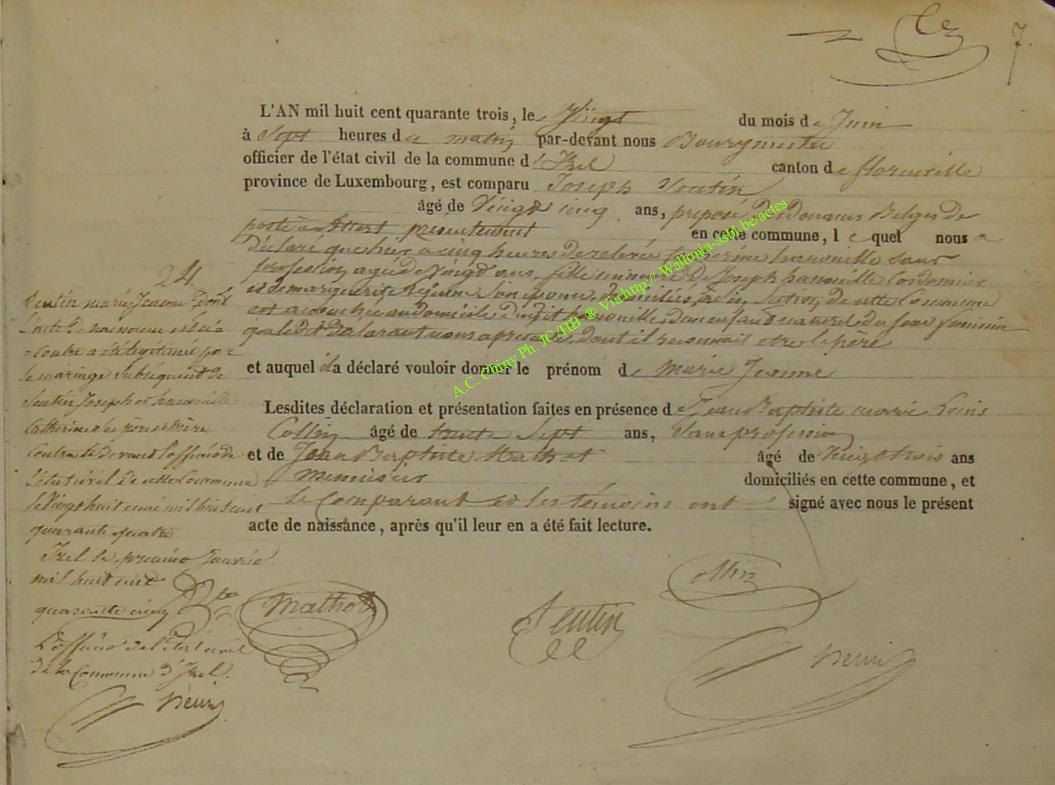 7.
L'AN mil huit cent quarante trois, le Vingt du mois de Juin
à Sept heures du matin par-devant nous Bourgmestre
officier de l'état civil de la commune d'Izel canton de florenville
province de Luxembourg, est comparu Joseph Sentin
âgé de Vingt cinq ans, préposé de douanes Belges de
poste à présentement en cette commune, lequel nous a
Déclaré que hier à cinq heures de relevée Catherine hanouille Sans
profession agée de Vingt ans, fille de Joseph hanouille Cordonnier
et de marguerite Son épouse domiciliés section de cette Commune
est accouchée au domicile dudit hanouille, d'un enfant naturel du sexe féminin
que ledit déclarant nous a présenté, dont il reconnait etre le père
et auquel il a déclaré vouloir donner le prénom de Marie Jeanne
Lesdites déclaration et présentation faites en présence de Jean Baptiste Louis
Collin âgé de trente Sept ans, Sans profession
et de Jean Baptiste Mathot âgé de ans
Menuisier domiciliés en cette commune, et
le Comparant et les témoins ont signé avec nous le présent
acte de naissance, après qu'il leur en a été fait lecture.
24
Sentin marie Jeanne Dont
l'acte de naissance est ci
contre a été légitimée par
le mariage Subséquent de
Sentin Joseph et hanouille
Catherine ses père et mère
Contracté devant l'officier de
l'état civil de cette Commune
le Vingt huit mai mil huit cent
quarante quatre
Izel le premier Janvier
mil huit cent
quarante cinq
L'officier de l'état civil
de la Commune d'Izel.
Henri
Mathot
Sentin
Collin
Henri
A.C. Chiny Ph. JC THB ® Via http:// Wallonia-asbl.be/actes